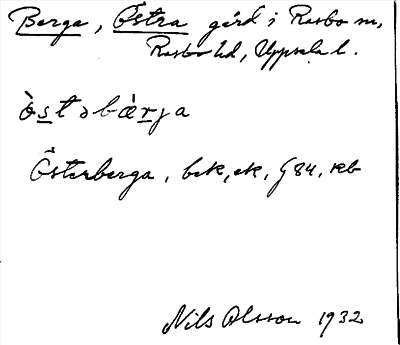 Berga, Östra gård i Rasbo sn,
Rasbo hd, Uppsala l.
ò̀s̲təbæ̀r̲ja
Österberga, bek, ek, § 84, kb
Nils Olsson 1932